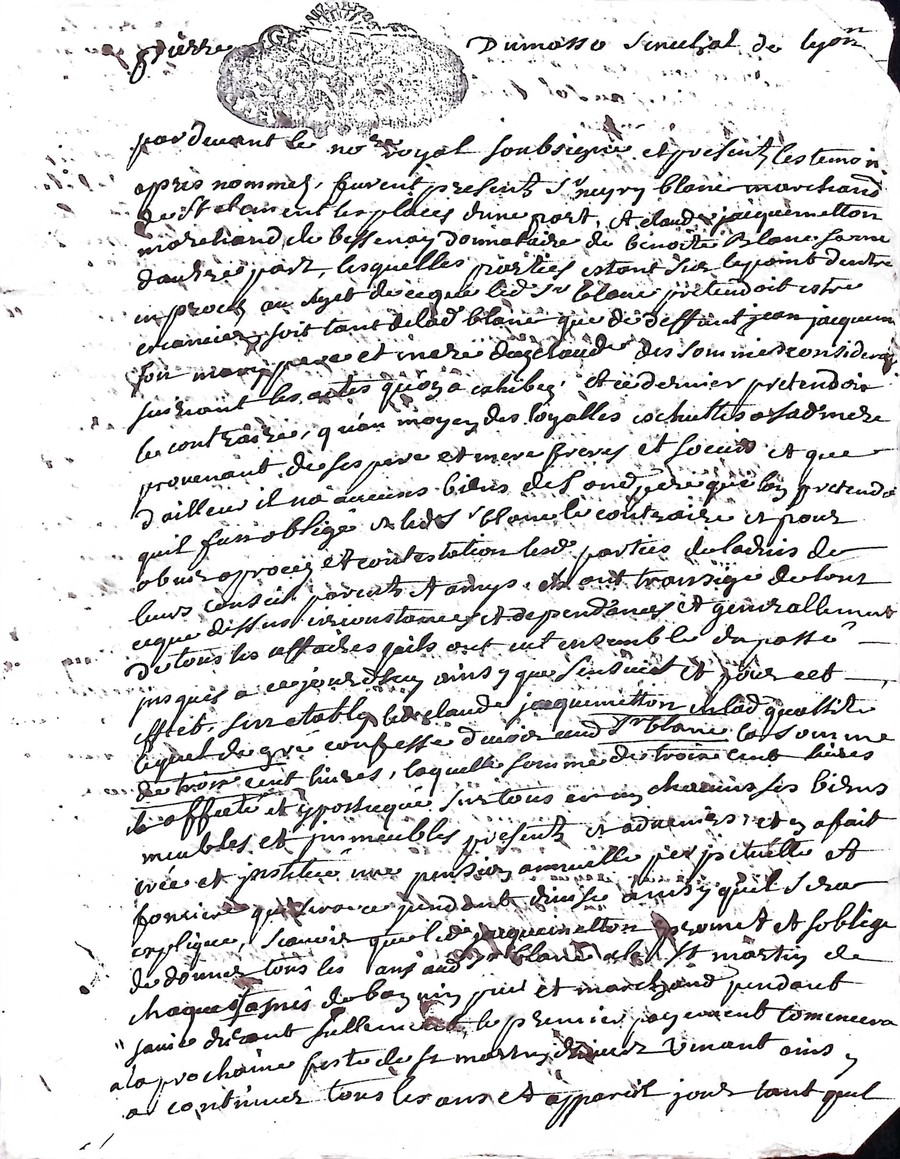 pierre Dumasso senechal de lyon
pardevant le no^re royal soubsigné et presentz les temoin
apres nommez, furent presentz s^r neyry blanc marchand
de St clement les places d'une part, et claude jacquemetton
marchand de bessenay donnataire de benoite blanc sa mere
dautre part, lesquelles parties estant sur le point dentre
en procez au sujet de ce que led s^r blanc pretendoit estre
creancier, soit tant de lad blanc que de deffunt jean jacquem
son mary pere et mere dud claude des sommes considera
suivant les actes quon a exhibez, et ce dernier pretendoit
le contraire, quau moyen des loyalles eschuttes a sad mere
provenant de ses pere et mere freres et soeurs et que
dailleur il na aucuns biens de sond pere que lon pretende
quil fust obligé et led s^r blanc le contraire et pour
obvier a procez et contestation lesd parties de ladvis de
leurs conseil parents et amys ils ont transigé de tout
ceque dessus circonstances et dependances et generallement
de tous les affaires quils ont eut ensemble du passé
jusques a ce jourdhuy ainsy que sensuit et pour cet
effet sur etably led claude jacquemetton en lad quallité
lequel de gré confesse devoir aud s^r blanc la somme
de trois cent livres, laquelle somme de trois cent livres
a affecté et ypotequé sur tous un chacuns ses biens
meubles et jmmeubles presentz et advenirs, et en a fait
créé et jnstitué une pension annuelle perpetuelle et
fonciere ainsy quil sera
expliqué, scavoir que led jacquemetton promet et soblige
de donner tous les ans aud s^r blanc a la St martin de
chaques asnés de bon vin pur et marchand pendant
jcelle durant sullement, le premier payement comencera
a la prochaine feste de st martin dhiver venant ainsy
a continuer tous les ans et a pareil jour tant quil